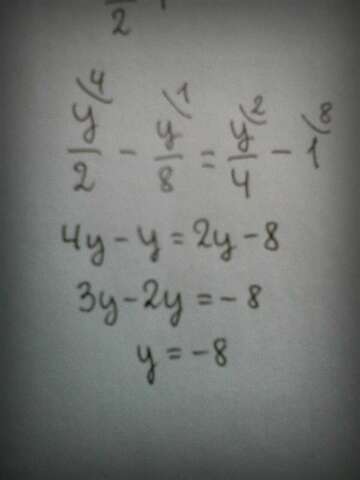 2
y/2 ⁽⁴ - y/8 ⁽¹ = y/4 ⁽² - 1 ⁽⁸
4y - y = 2y - 8
3y - 2y = - 8
y = - 8